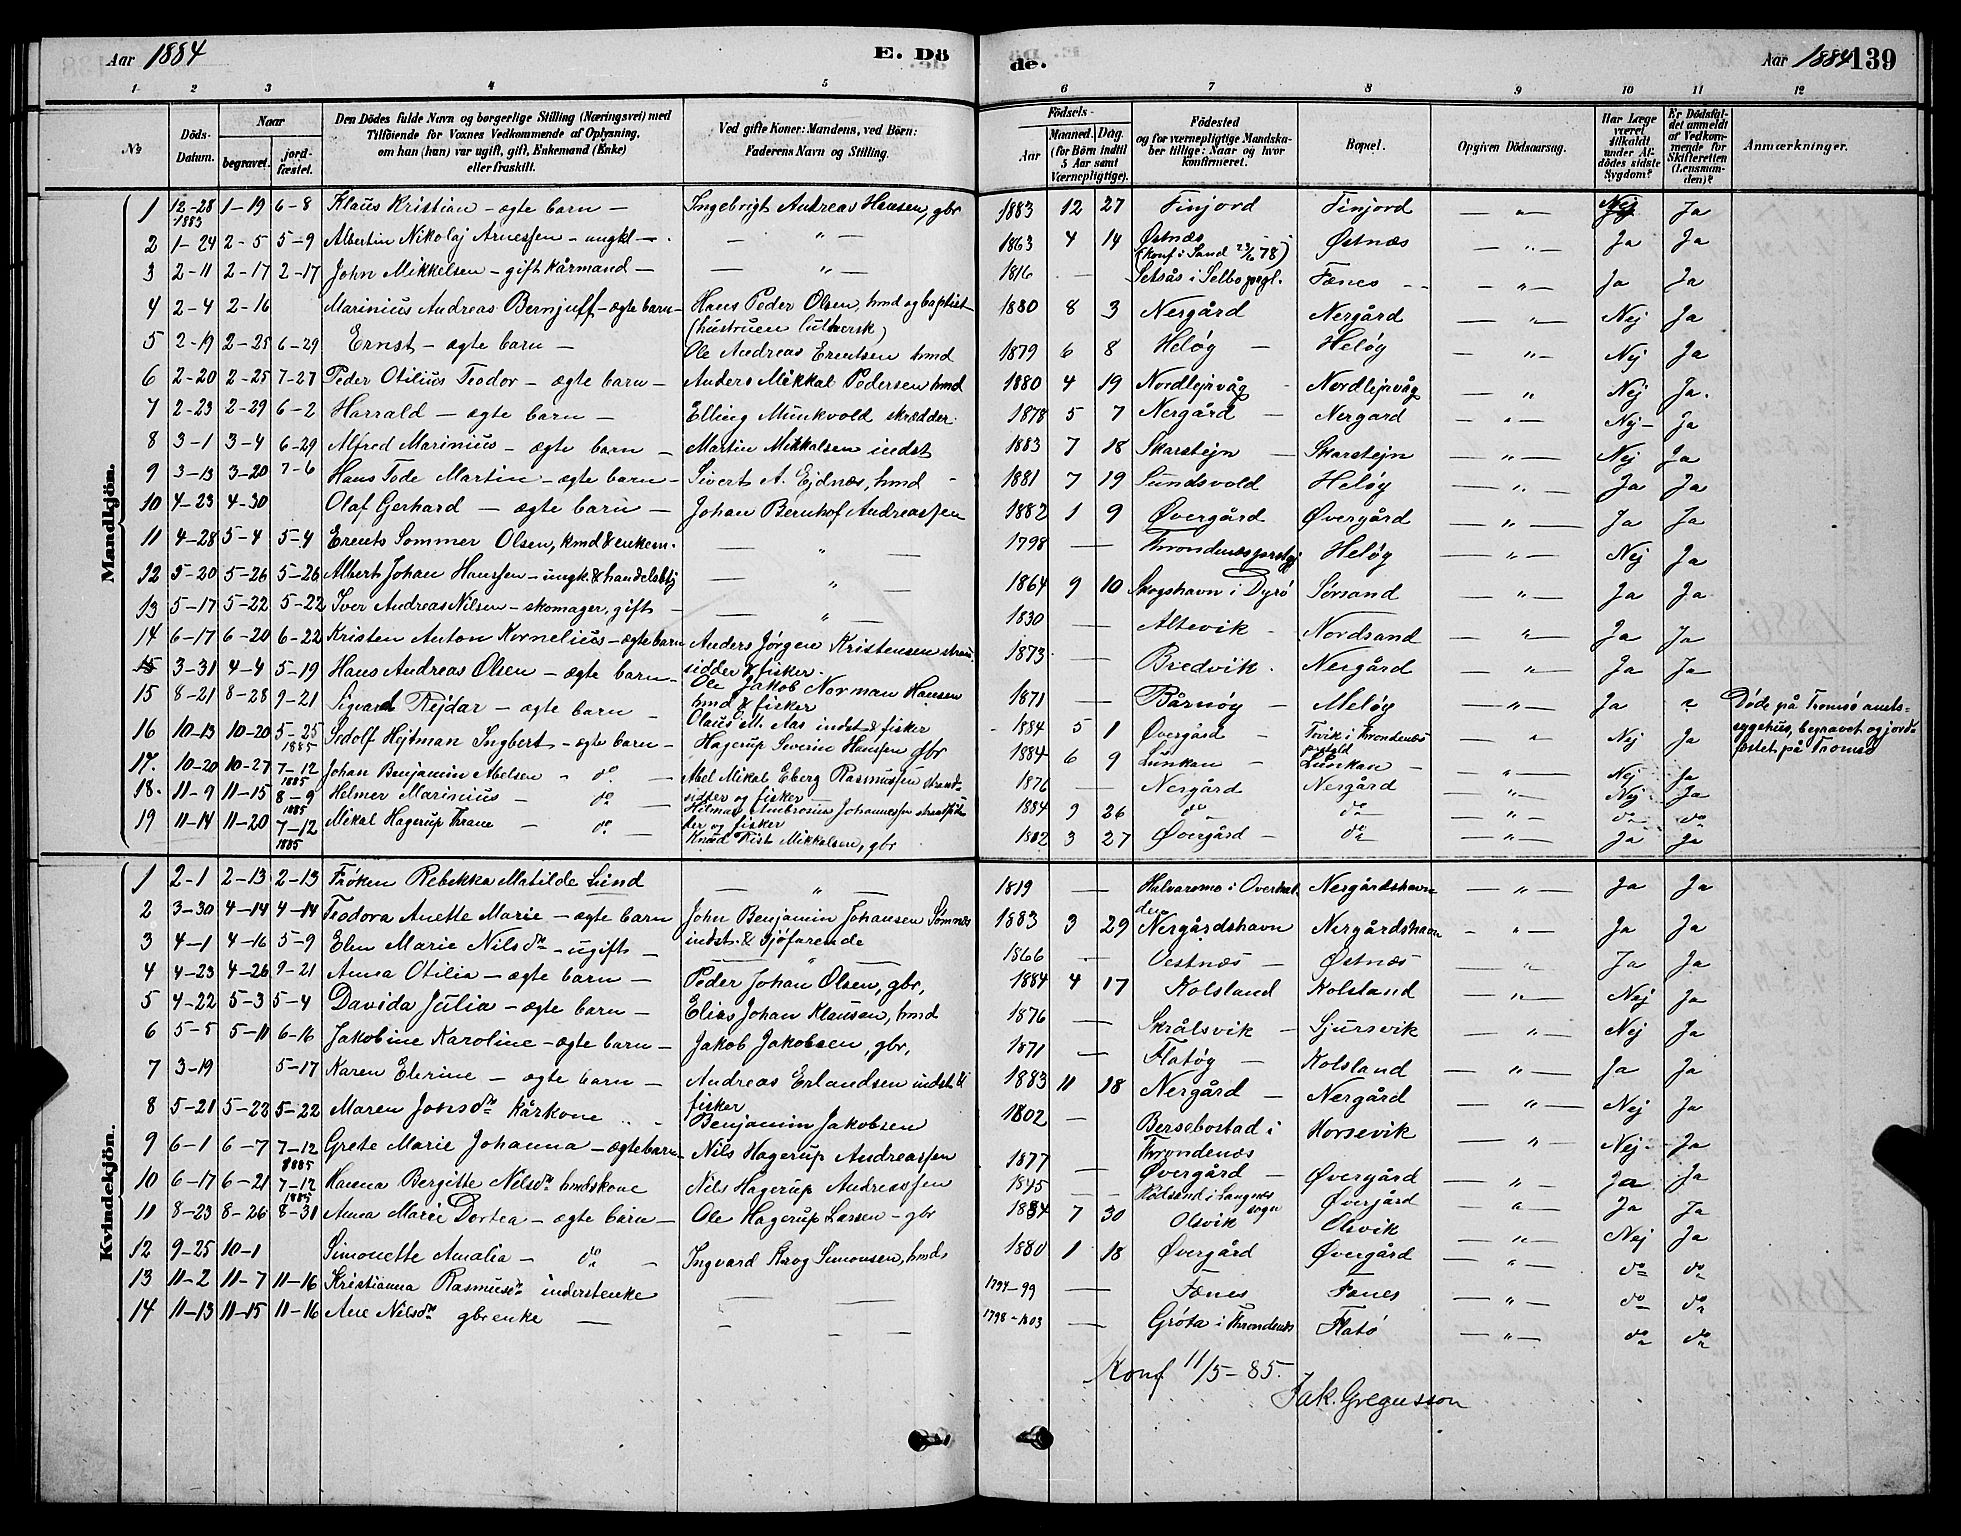 Aar 1884
E. Dö
1 2 3 4 5
No
Döds-Datum.
Naar
begravet.
jord-fæstet.
Den Dödes fulde Navn og borgerlige Stilling (Næringsvei) med
Tilföiende for Voxnes Vedkommende af Oplysning,
om han (hun) var ugift, gift, Enkemand (Enke)
eller fraskilt.
Ved gifte Koner: Mandens, ved Börn:
Faderens Navn og Stilling.
Mandkjön.
1 12-28 1883 1-19 6-8 Klaus Kristian - ægte barn - Ingebrigt Andreas Hansen, gbr
2 1-24 2-5 5-9 Albertin Nikolaj Arnessen - ungkl - — " —
3 2-11 2-17 2-17 John Mikkelsen - gift kårmand - — " —
4 2-4 2-16 Marinius Andreas Bernjuff - ægte barn - Hans Peder Olsen, hmd og baptist
(hustruen luthersk)
5 2-19 2-25 6-29 Ernst - ægte barn - Ole Andreas Erentsen hmd
6 2-20 2-25 7-27 Peder Otilius Teodor - ægte barn - Anders Mikkal Pedersen hmd
7 2-23 2-29 6-2 Harrald - ægte barn - Elling Munkvold skrædder
8 3-1 3-4 6-29 Alfred Marinius - ægte barn - Martin Mikkalsen indst
9 3-13 3-20 7-6 Hans Tode Martin - ægte barn - Sivert A. Ejdnæs, hmd
10 4-23 4-30 Olaf Gerhard - ægte barn - Johan Bernhof Andreassen
11 4-28 5-4 5-4 Erents Sommer Olsen, kmd & enkem. — " —
12 5-20 5-26 5-26 Albert Johan Hanssen - ungk. & handelsbtj — "
13 5-17 5-22 5-22 Iver Andreas Nilsen - skomager, gift - — " —
14 6-17 6-20 6-22 Kristen Anton Kornelius - ægte barn Anders Jørgen Kristensen strand
sidder & fisker.
15 3-31 4-4 5-19 Hans Andreas Olsen - ægte barn - Ole Jakob Norman Hansen
hmd & fisker
15 8-21 8-28 9-21 Sigvard Rejdar - ægte barn - Olaus Ell. Aas indst & fisker
16 10-13 10-20 5-25 1885 Sedolf Hejtman Ingbert - ægte barn - Hagerup Severin Hanssen gbr
17. 10-20 10-27 7-12 1885 Johan Benjamin Abelsen - do. - Abel Mikal Eberg Rasmussen strand-
sidder og fisker
18. 11-9 11-15 8-9 1885 Helmer Marinius - do - Hilmar Ambrosius Johannessen strandsid
der og fisker
19 11-14 11-20 7-12 1885 Mikal Hagerup Krane - do - Knud Krist Mikkalsen, gbr
Kvindekjön.
1 2-1 2-13 2-13 Frøken Rebekka Matilde Lund — " —
2 3-30 4-14 4-14 Teodora Anette Marie - ægte barn John Benjamin Johansen Sømnes
indst. & sjöfarende
3 4-1 4-16 5-9 Elen Marie Nilsdr - ugift - — " —
4 4-23 4-26 9-21 Anna Otilia - ægte barn - Peder Johan Olsen, gbr,
5 4-22 5-3 5-4 Davida Julia - ægte barn - Elias Johan Klausen, hmd
6 5-5 5-11 6-16 Jakobine Karoline - ægte barn - Jakob Jakobsen, gbr,
7 3-19 5-17 Karen Elerine - ægte barn - Andreas Erlandsen indst &
fisker
8 5-21 5-22 5-22 Maren Jonsdr kårkone Benjamin Jakobsen
9 6-1 6-7 7-12 1885 Grete Marie Johanna - ægte barn - Nils Hagerup Andreassen
10 6-17 6-21 7-12 1885 Hanna Bergitte Nilsdr hmdskone Nils Hagerup Andreassen
11 8-23 8-26 8-31 Anna Marie Dortea - ægte barn - Ole Hagerup Larsen - gbr
12 9-25 10-1 Simonette Amalia - do - Ingvard Krog Simonsen, hmd
13 11-2 11-7 11-16 Kristianna Rasmusdr inderstenke — —
14 11-13 11-15 11-16 Ane Nilsdr gbrenke — — —
de.
Aar 1884 139
6 7 8 9 10 11 12
Födsels-
Aar
Maaned. Dag.
(for Börn indtil
5 Aar samt
Værnepligtige).
Födested
og for værnepligtige Mandska-
ber tillige: Naar og hvor
konfirmeret.
Bopæl.
Opgiven Dödsaarsag.
Har Læge
været
tilkaldt
under Af-
dödes sidste
Sygdom?
Er Dödsfal-
det anmeldt
af Vedkom-
mende for
Skifteretten
(Lensman-
den)?
Anmærkninger.
1883 12 27 Finjord Finjord — " — Nej Ja
1863 4 14 Østnæs Østnæs — " — Ja Ja
(konf i Sand 23/6 78)
1816 — Selsås i Selbo pregl. Fænes — " — Ja Ja
1880 8 3 Nergård Nergård — " — Nej Ja
1879 6 8 Heløg — Heløg — " — Nej Ja
1880 4 19 Nordlejrvåg Nordlejrvåg — " Nej Ja.
1878 5 7 Nergård — Nergard — " — Nej - Ja
1883 7 18 Skarstejn — Skarstejn — " — Nej Ja
1881 7 19 Sundsvold Heløg — " — Ja Ja
1882 1 9 Øvergård Øvergård — " — Ja Ja
1798 — Throndenæs prestgj Heløg — " — Nej Ja
1864 9 10 Skogshavn i Dyrø Sørsand — " — Ja Ja
1830 — Altevik - Nordsand — " — Ja Ja
1873 — Bredvik. Nergård — " — Ja Ja
1871 — Bårnøg — Meløg — " — Ja " Döde på Tromsö amts-
sygehus, begravet og jord-
fæstet på Tromsö
1884 5 1 Øvergård — Tevik i Throndenæs — " Nej Ja
1884 6 9 Lunkan — Lunkan — — " — Nej Ja
1876 — Nergård Nergård — " — Nej Ja
1884 9 26 do do — " — do do
1882 3 27 Øvergård — do — " — Ja Ja
1819 — Halvaromo i Overhal- Nergårdshavn — " — Ja Ja
den
1883 3 29 Nergårdshavn Nergårdshavn - " — Ja Ja
1866 — Oestnæs — Østnæs — " — Ja Ja
1884 4 17 Kolsland Kolsland — " — Nej Ja
1876 — Skrålsvik — Sjursvik — " — Nej Ja
1871 — Flatøg — Kolsland — " — Ja Ja
1883 11 18 Nergård — Nergård — " — Nej Ja
1802 — Bersebostad i Horsevik — " — Nej - Ja
Throndenæs
1877 — Øvergård — Øvergård — " — Ja Ja
1845 — Rödsand i Langnes Øvergård — " — Ja Ja
sogn
1884 7 30 Olsvik Olsvik — " — Nej Ja
1880 1 18 Øvergård Øvergård — " — do do
1794-99 — Fænes Fænes — " — do do
1798-1803 — Gröta i Throndenæs Flatö — " — do do
Konf 11/5 - 85.
Jak. Gregusson